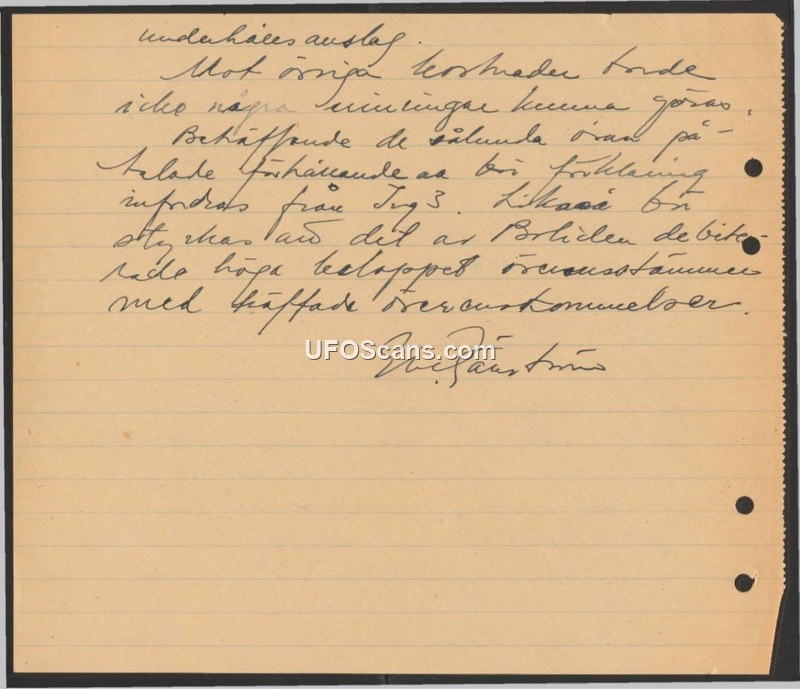 underhålls anslag.
Mot övriga kostnader torde
icke några erinringar kunna göras.
Beträffande de sålunda ovan på-
talade förhållandena bör förklaring
infordras från Ing 3. Likaså bör
styrkas att det av Boliden debite-
rade höga beloppet överensstämmer
med träffade överenskommelser.
UFOScans.com